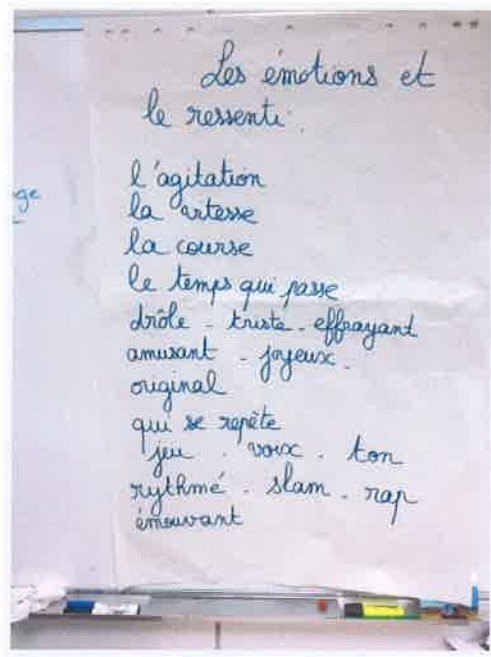 Les émotions et
le ressenti.
l'agitation
la vitesse
la course
le temps qui passe
drôle - triste - effrayant
amusant - joyeux -
original
qui se repète
jeu - voix - ton
rythmé - slam - rap
émouvant
ge